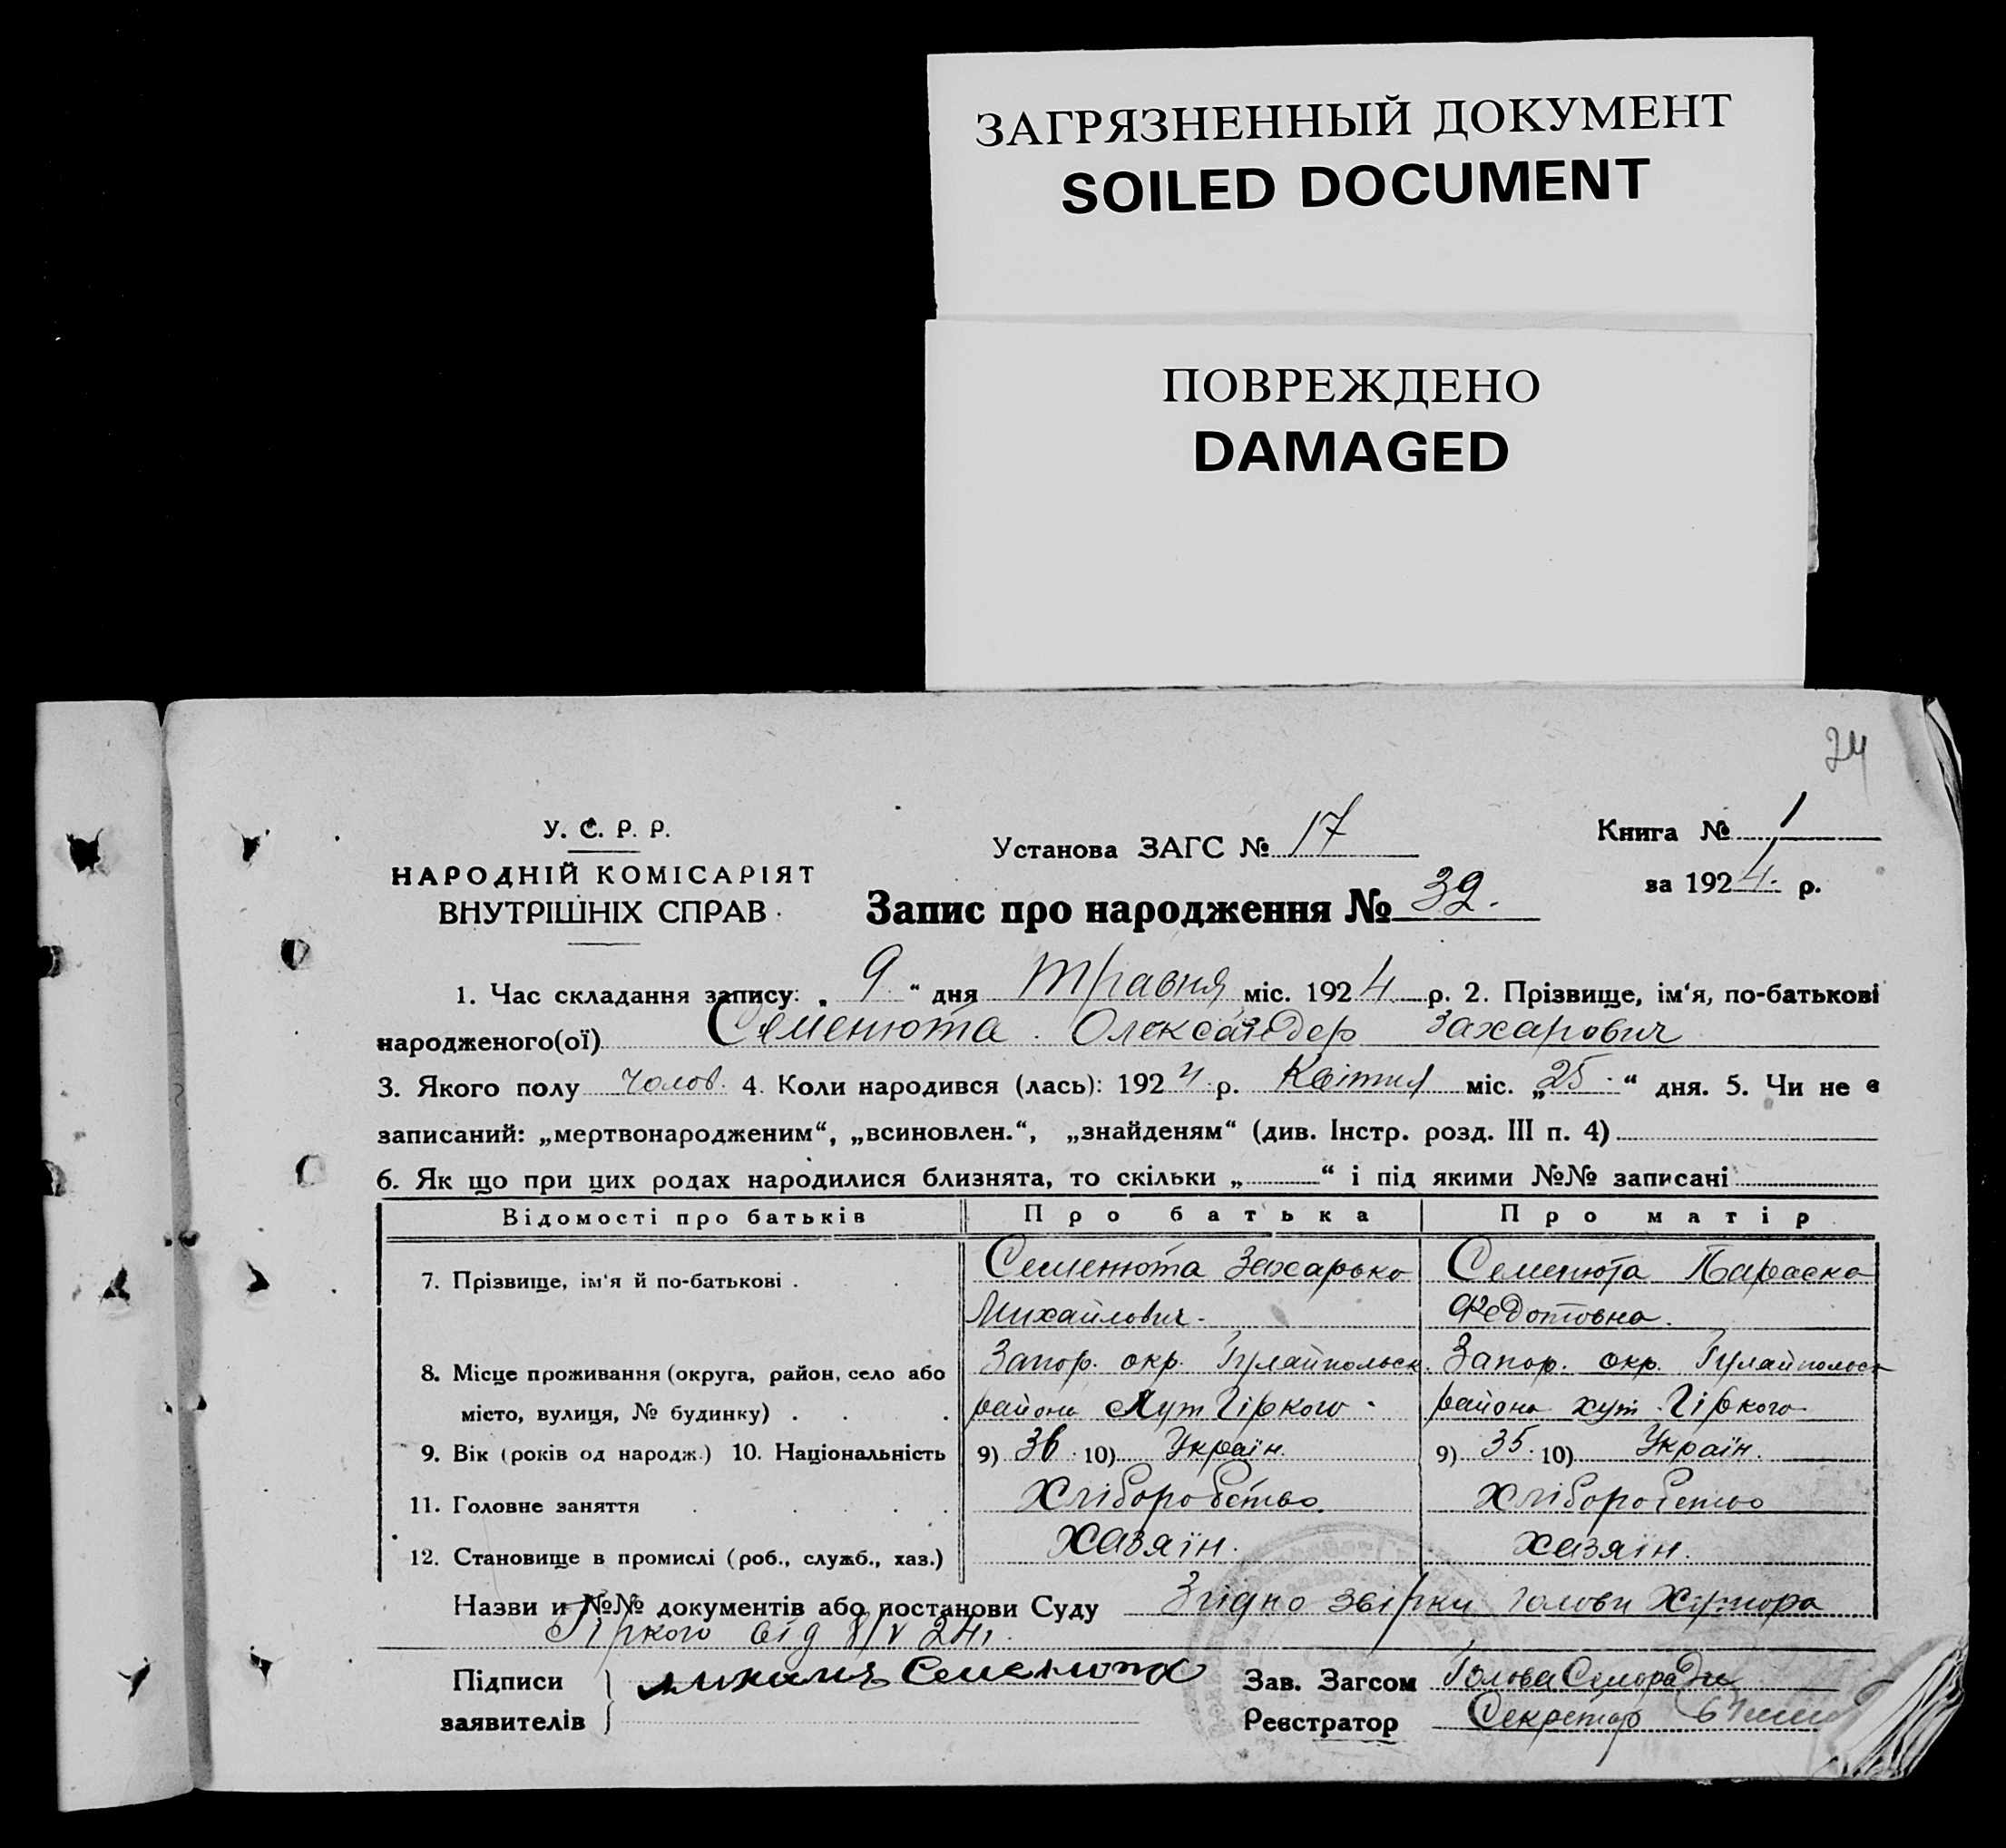 ЗАГРЯЗНЕННЫЙ ДОКУМЕНТ
SOILED DOCUMENT
ПОВРЕЖДЕНО
DAMAGED
24
У. С. Р. Р.
НАРОДНІЙ КОМІСАРІЯТ
ВНУТРІШНІХ СПРАВ
Установа ЗАГС № 17
Книга № 1
за 1924. р.
Запис про народження № 39.
1. Час складання запису: „ 9 “ дня Травня міс. 1924 р. 2. Прізвище, ім‘я, по-батькові
народженого(ої) Семенюта Олександер Захарович
3. Якого полу чолов. 4. Коли народився (лась): 1924 р. Квітня міс. „25“ дня. 5. Чи не є
записаний: „мертвонародженим“, „всиновлен.“, „знайденям“ (див. Інстр. розд. III п. 4)
6. Як що при цих родах народилися близнята, то скільки „ “ і під якими №№ записані
Відомості про батьків Про батька Про матір
7. Прізвище, ім‘я й по-батькові . Семенюта Захарько Семенюта Параска
Михайлович. Федотовна.
Запор. окр. Гуляйпольск. Запор. окр. Гуляйпольск
8. Місце проживання (округа, район, село або
місто, вулиця, № будинку) . района Хут Гіркого района хут. Гіркого
9. Вік (років од народж.) 10. Національність 9) 36 10) Україн. 9) 35. 10) Україн.
11. Головне заняття Хліборобство Хліборобство
12. Становище в промислі (роб., служб., хаз.) Хазяїн. Хазяїн.
Назви и №№ документів або постанови Суду Згідно звірки Голови Хутора
Гіркого від 8/V 24
Підписи Семенюта Зав. Загсом Голова Сельради
заявителів Реєстратор Секретар